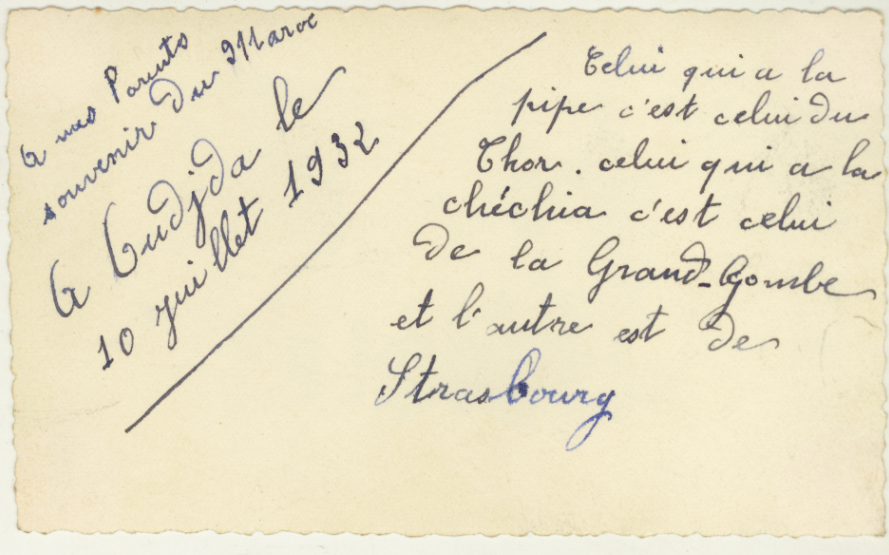 A mes Parents
souvenir du Maroc
A Oudjda le
10 juillet 1932
Celui qui a la
pipe c'est celui du
Thor. celui qui a la
chéchia c'est celui
de la Grand-Gombe
et l'autre est de
Strasbourg